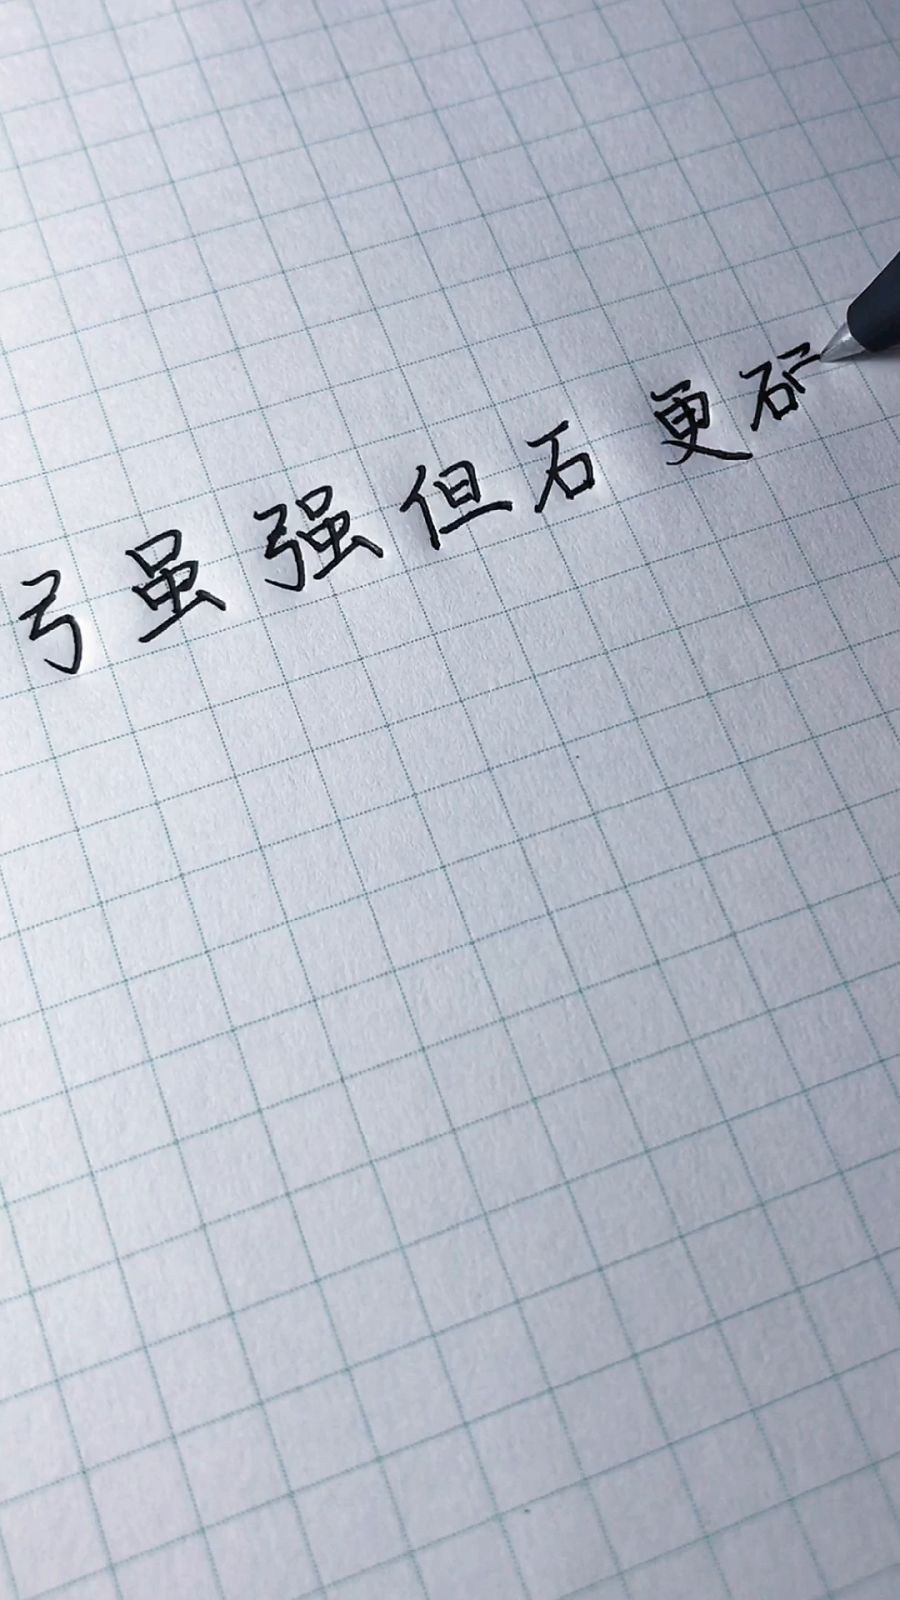 弓虽强但石更